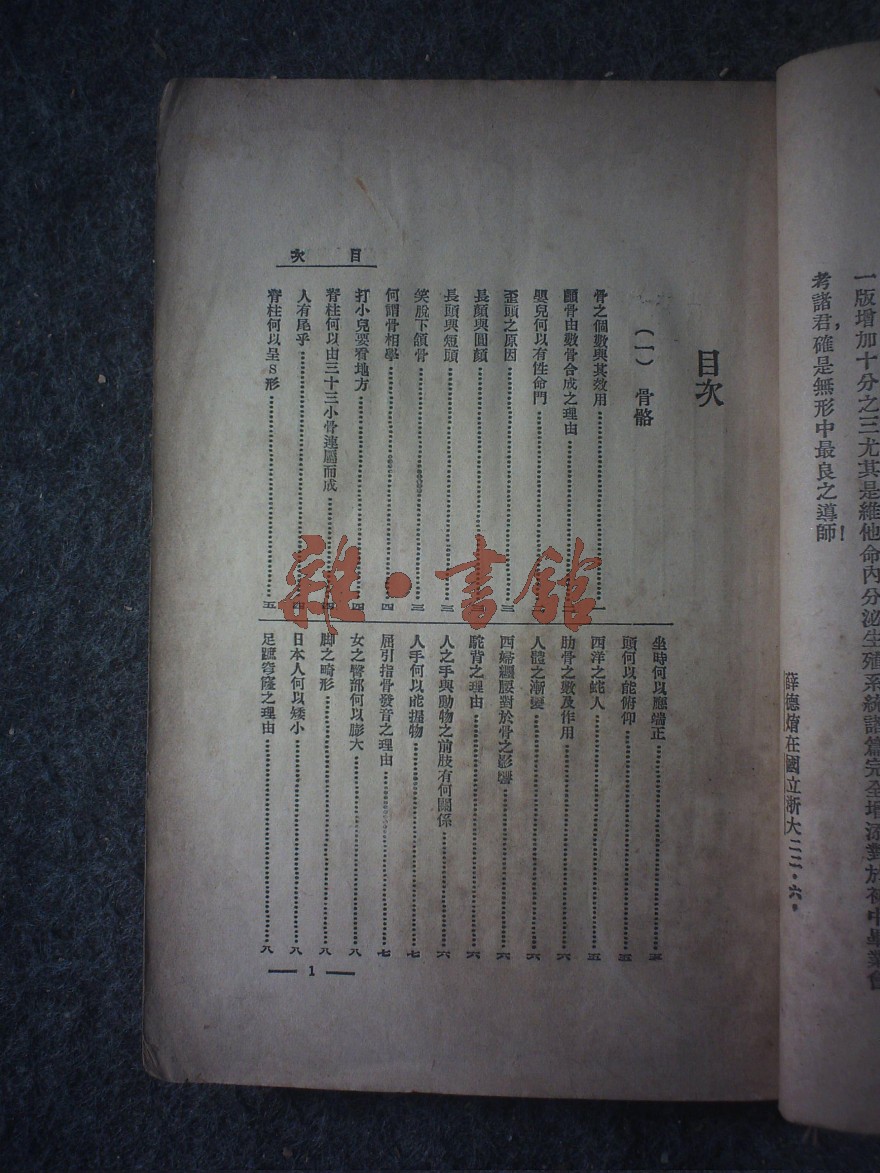 一版增加十分之三尤其是維他命內分泌生殖系統諸篇完全增添對於初中畢業會
考諸君,確是無形中最良之導師!
薛德焴在國立浙大二二·六·
目次
(一) 骨骼
骨之個數與其效用……一
顱骨由數骨合成之理由……二
嬰兒何以有性命門……二
歪頭之原因……三
長顏與圓顏……三
長頭與短頭……三
笑脫下頷骨……三
何謂骨相學……四
打小兒要看地方……四
脊柱何以由三十三小骨連屬而成……四
人有尾乎……四
脊柱何以呈S形……五
坐時何以應端正……五
頭何以能俯仰……五
西洋之蛇人……五
肋骨之數及作用……六
人體之漸變……六
西婦纏腰對於骨之影響……六
駝背之理由……六
人之手與動物之前肢有何關係……六
人手何以能握物……七
屈引指骨發音之理由……七
女之臀部何以膨大……八
腳之畸形……八
日本人何以矮小……八
足蹠穹窿之理由……八
目次
1
雜·書館